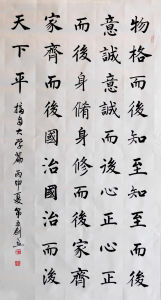 物格而後知至知至而後
意誠意誠而後心正心正
而後身脩身修而後家齊
家齊而後國治國治而後
天下平
摘自大学篇丙申夏